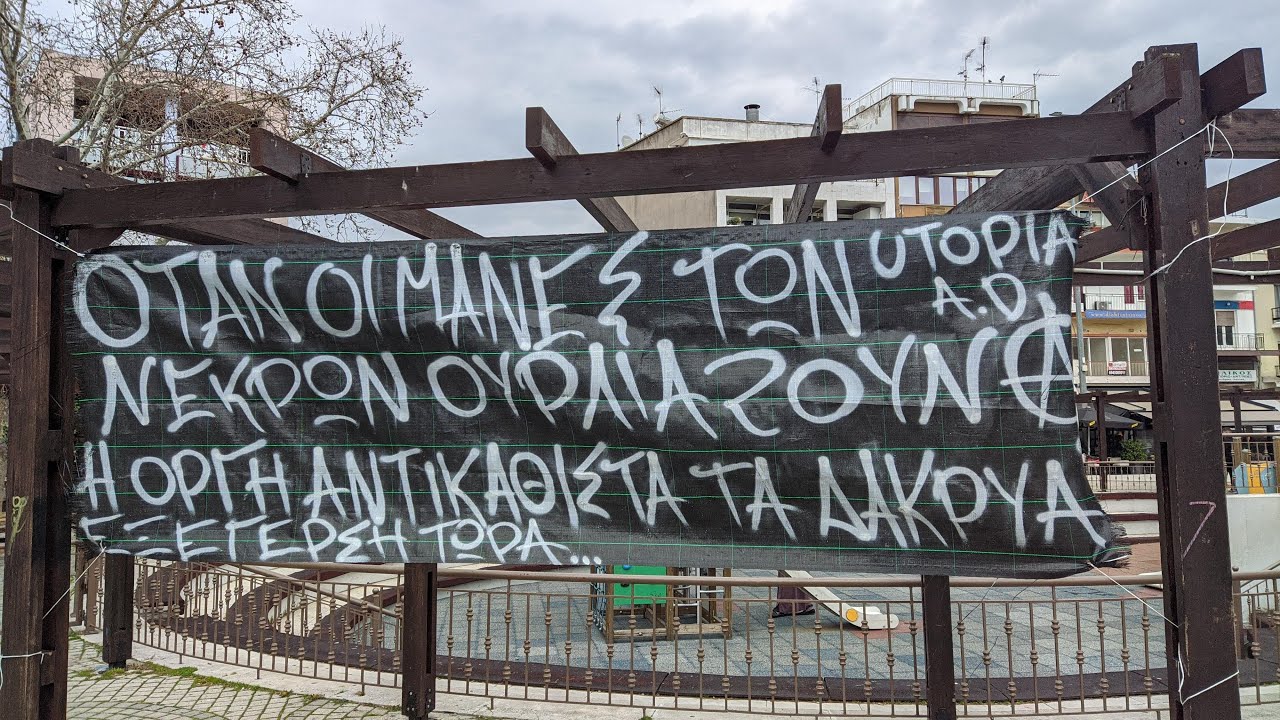 ΟΤΑΝ ΟΙ ΜΑΝΕΣ ΤΩΝ
UTOPIA
A.D.
ΝΕΚΡΩΝ ΟΥΡΛΙΑΖΟΥΝ Ⓐ
Η ΟΡΓΗ ΑΝΤΙΚΑΘΙΣΤΑ ΤΑ ΔΑΚΡΥΑ
ΕΞΕΓΕΡΣΗ ΤΩΡΑ...